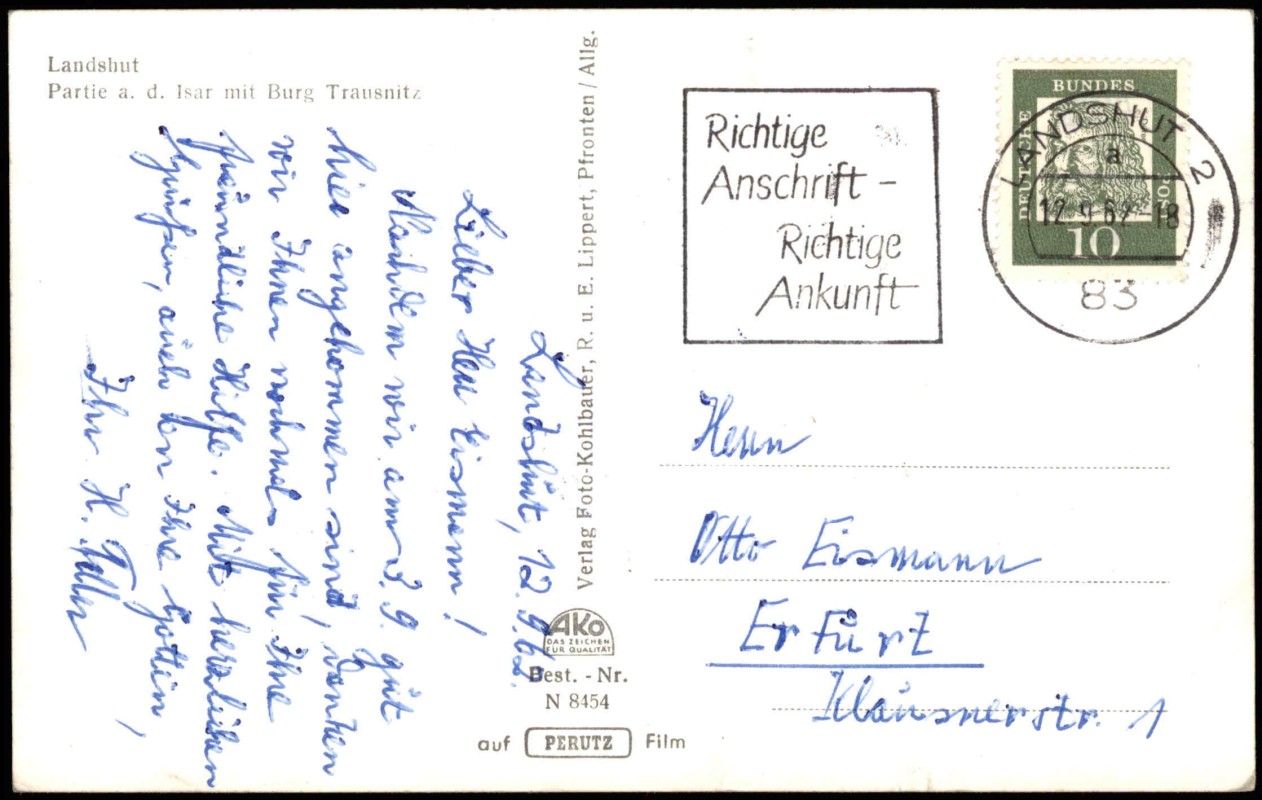 Landshut
Partie a. d. Isar mit Burg Trausnitz
Landshut, 12.9.62.
Lieber Herr Eismann!
Nachdem wir am 3. 9. gut
hier angekommen sind, danken
wir Ihnen nochmals für Ihre
freundliche Hilfe. Mit herzlichen
Grüßen, auch an Ihre Gattin,
Ihr H.
Verlag Foto-Kohlbauer, R. u. E. Lippert, Pfronten/Allg.
AKO
DAS ZEICHEN
FÜR QUALITÄT
Best. - Nr.
N 8454
auf PERUTZ Film
Richtige
Anschrift -
Richtige
Ankunft
DEUTSCHE
BUNDES
POST
10
LANDSHUT 2
a
12.9.62-18
83
Herrn
Otto Eismann
Erfurt
Klausnerstr. 1